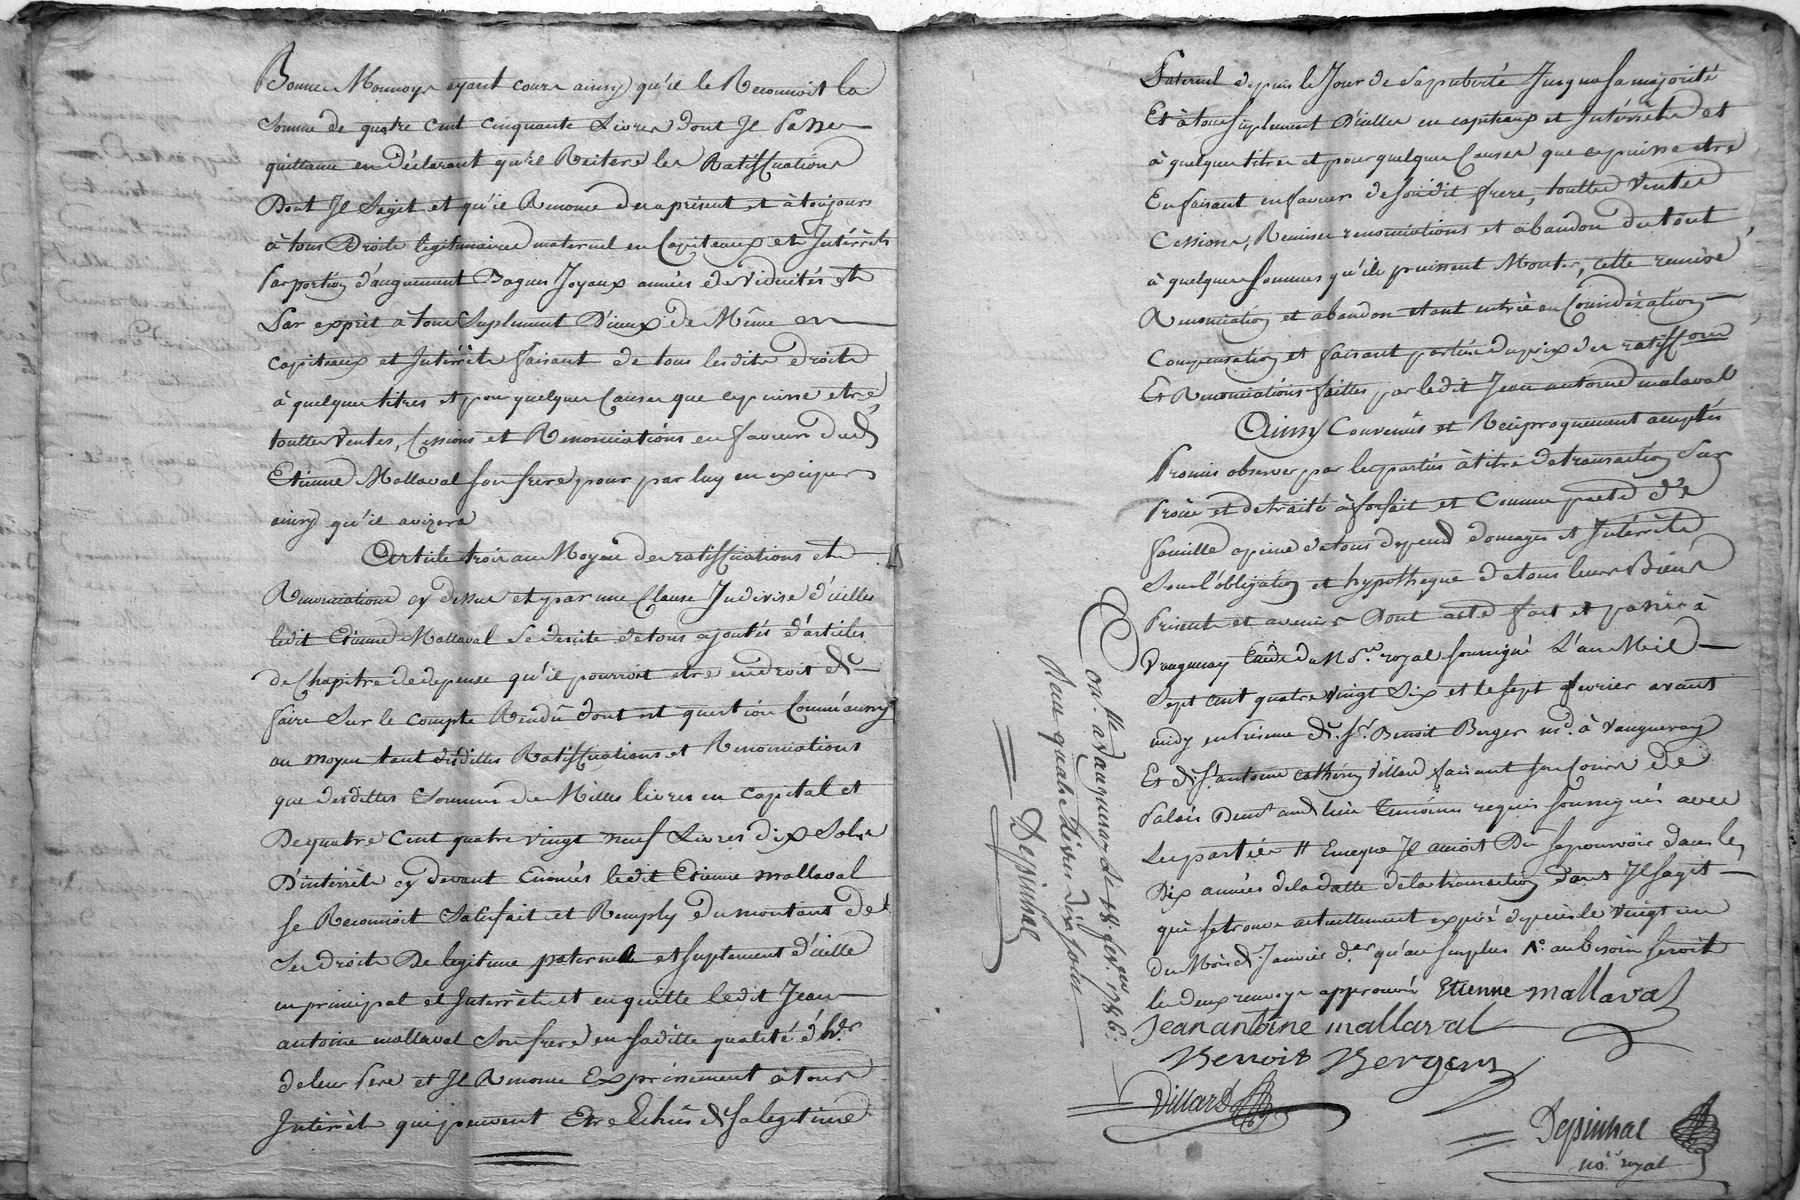 Bonne Monnoye ayant cours ainsy qu'il le Reconnoit la
Somme de quatre cent cinquante Livres dont Il Passe
quittance en déclarant qu'il Reitere les Ratiffications
Dont Il Sagit et qu'il Renonce des aprésent et à toujours
à tous Droits legitimaires maternel en Capiteaux et Intérêts
Par portion d'augment Bagues Joyaux années de Viduités et
Par exprèt à tous Suplement D'iceux de Même en
capiteaux et Intérrêts faisant de tous lesdits droits
à quelques titres et pour quelques Causes que ce puisse etre
touttes Ventes, Cessions et Renonciations en faveur dud.
Etienne Mallaval son frere pour par luy en exciper
ainsy qu'il avizera
Article trois au Moyen des ratiffications et
Renonciations cy dessus et par une Clause Indivise d'icelles
ledit Etienne Mallaval Se desiste de tous ajoutés d'articles
de Chapitre de depense qu'il pourroit etre en droit de
faire Sur le compte Rendu dont est question Comm'aussy
au moyen tant desdittes Ratiffications et Renonciations
que desdittes Sommes de Milles livres en capital et
De quatre Cent quatre vingt neuf Livres dix Sols
D'intérrêts cy devant Enoncés ledit Etienne mallaval
se Reconnoit Satisfait et Remply du montant de
Ses droits De legitime paternele et Suplement d'icelle
en principal et Interrêts et en quitte ledit Jean
antoine mallaval Son frere en saditte qualité d'hér.
de leur Pere et Il Renonce Expressement à tous
Intérrêts qui peuvent Etre Echus de sa legitime
Paternel depuis le Jour de sa puberté Jusqua sa majorité
Et à tous suplement D'icelles en capiteaux et Intérrêts et
à quelques titres et pour quelques Causes que ce puisse etre
En faisant en faveur de sondit frere, touttes Ventes
Cessions, Remises renonciations et abandon du tout
à quelques Sommes qu'ils puissent Monter, cette remise
Renonciation et abandon etant entrée en Considération
Compensation et faisant partie du prix des ratiffions
Et Renonciations faittes par ledit Jean antoine malaval
Ainsy Convenus et Réciproquement acceptés
Promis observer par les parties à titre de transaction Sur
Procès et de traité à forfait et Comme pacte de
famille a peine de tous depens domages et Intérrêts
Sous l'obligation et hypotheque de tous leurs Biens
Presents et avenirs Dont acte fait et passé à
Vaugneray Etude du No.re royal soussigné L'an Mil
Sept cent quatre vingt Six et le sept fevrier avant
midy en Présence de Sr. Benoit Berger md. à Vaugneray
Et de Sr. antoine cathérin Villard faisant Son Cours de
Palais Demt. aud. lieu temoins requis soussignés avec
Les parties # Encequ Il auroit Du se pourvoir dans les
Dix années de la datte de la transaction dont Il sagit
qui se trouve actuellement expiré depuis le vingt un
du Mois de Janvier d.er qu'au surplus N.° au besoin seroit
les deux renvoys approuvés Etienne mallaval
Jean antoine mallaval
Benoit Berger
Villard
Despinhac
no.re royal
Con.llé a Vaugneray le 18. fév.er 1786.
Reçu quatre livres dix sols
Despinhac